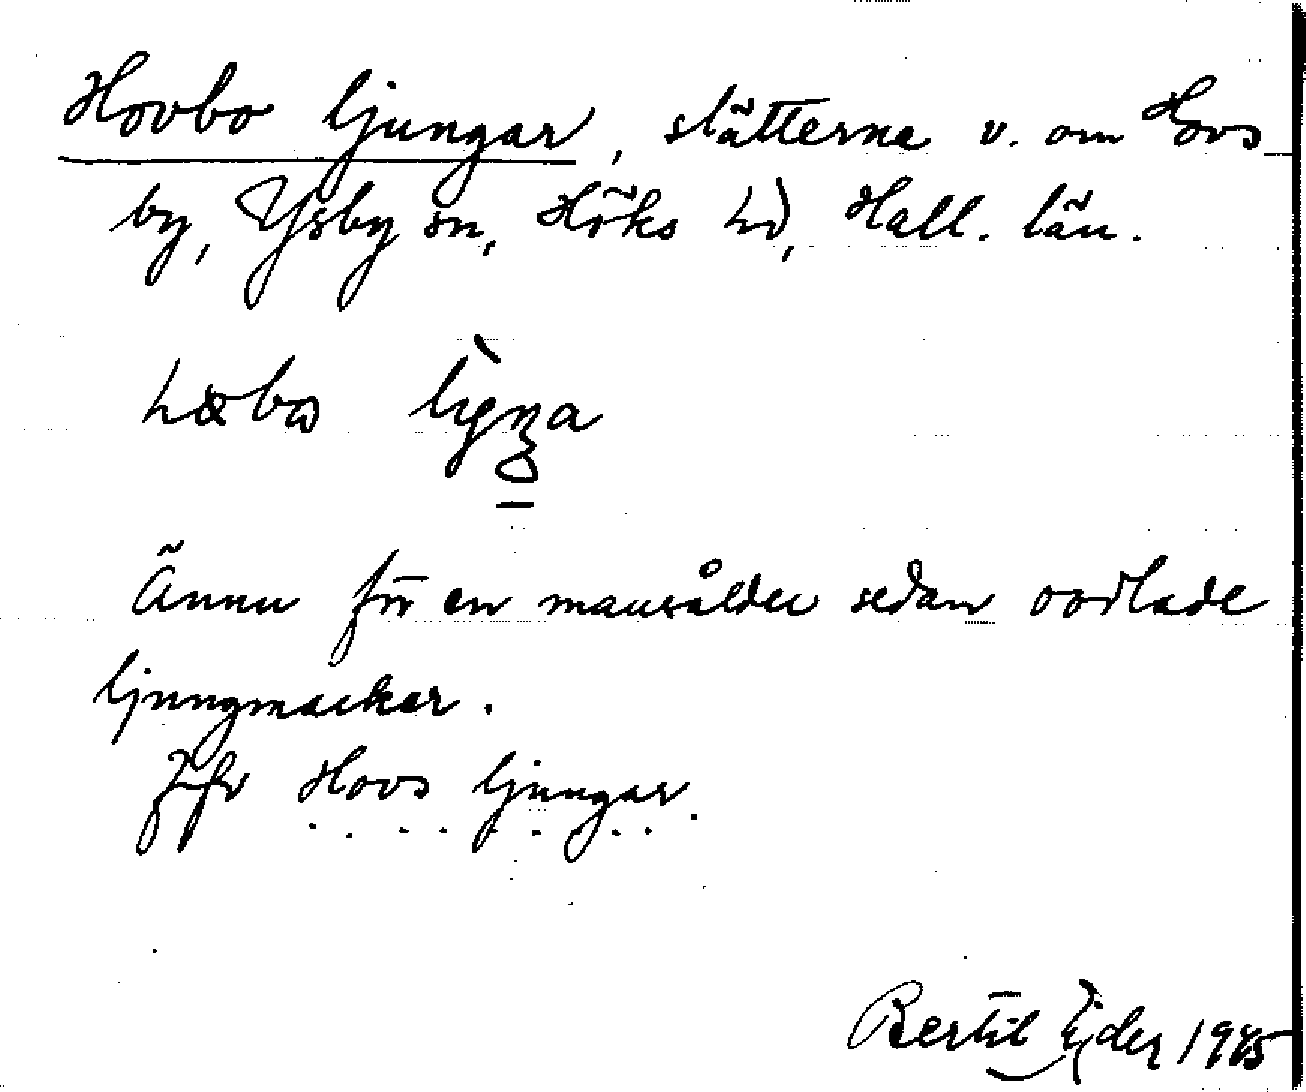 Hovbo ljungar, slätterna v. om Hovs
by, Ysby sn, Höks hd, Hall. län.
Ännu för en mansålder sedan oodlade
ljungmarker.
Jfr Hovs ljungar.
Bertil Ejder 1945